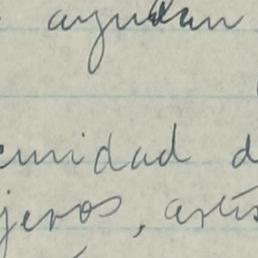 ayudan
cunidad d
jeros, artis